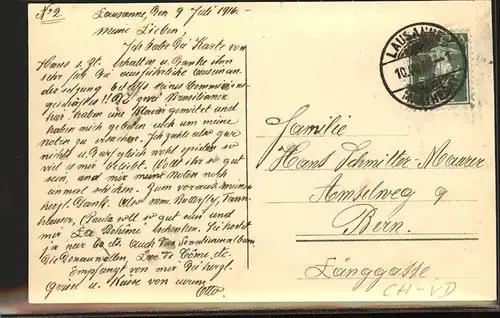 No 2.
Lausanne, den 9 Juli 1916.
Meine Lieben!
Ich habe die Karte von
Hans s. Zt. erhalten u. danke ihm
sehr für die ausführliche Auseinan-
dersetzung betreffs seines Commissions-
geschäftes!! Zwei Brasilianer
hier, haben ein Klavier gemietet und
haben mich gebeten auch um meine
Noten zu ersuchen. Ich zahle also gar
nichts u. darf gleich wohl spielen so
viel es mir beliebt. Wollt ihr so gut
sein, und mir meine Noten noch
einmal schicken. Zum voraus meinen
herzl. Dank. Also Mme Butterfly, Tann-
häuser, (Paula soll so gut sein und
mir "La Bohème" schenken. Sie kostet
ja nur 60 cts. Auch das
Die Donauwellen, etc.
Empfangt von mir die herzl.
Grüsse u. Küsse von eurem Otto.
LAUSANNE
10.
Familie
Hans Schmitter-Maurer
Amselweg 9
Bern.
Länggasse.
CH-VD